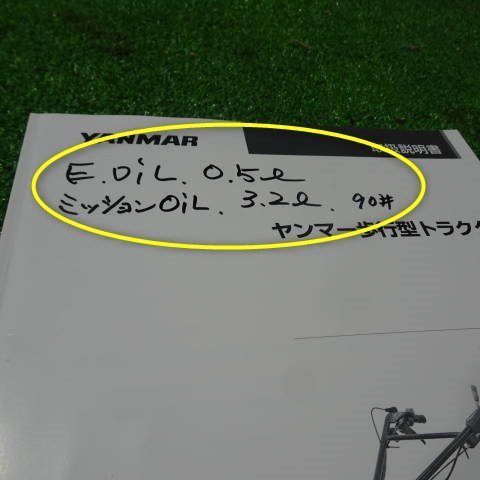 YANMAR
取扱説明書
E.OiL. 0.5ℓ
ミッションOiL. 3.2ℓ. 90#
ヤンマー歩行型トラクタ